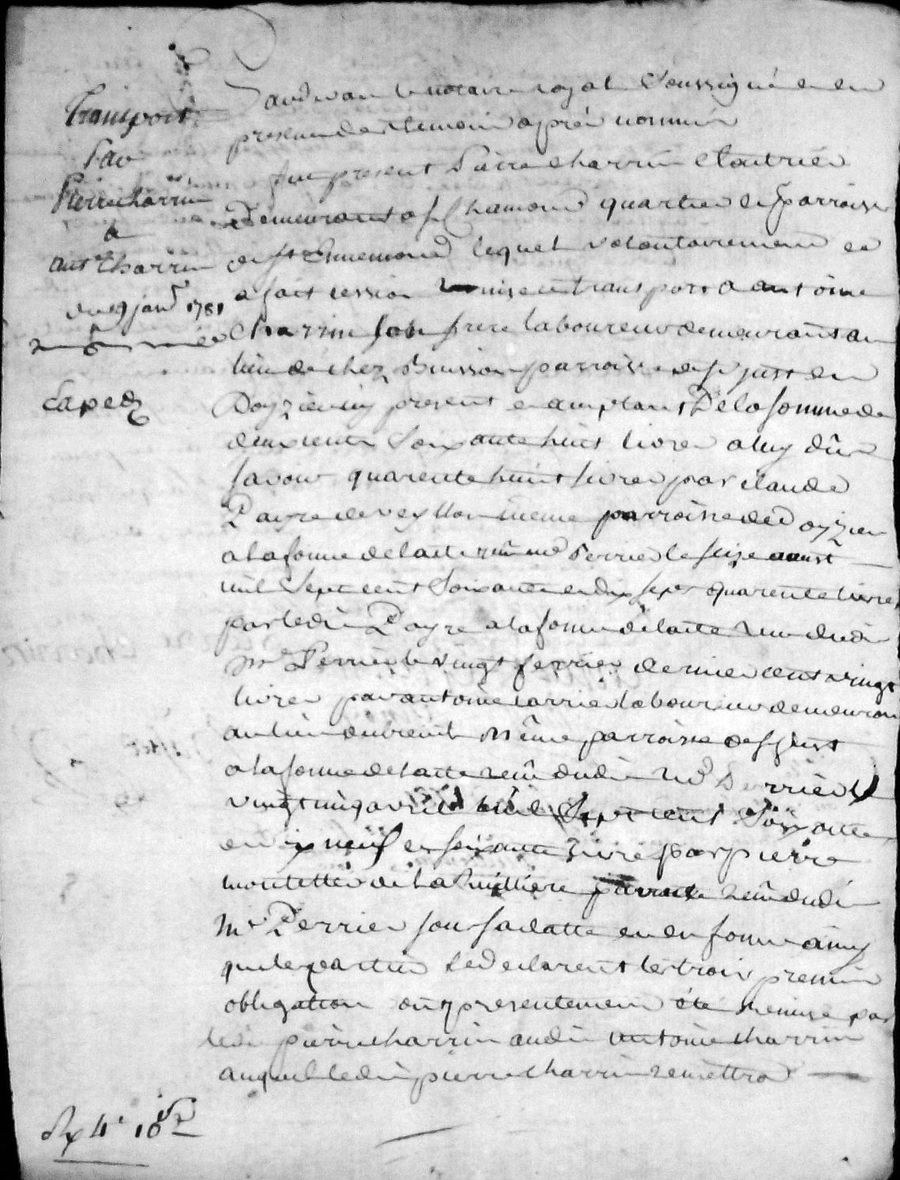 Transport
par
Pierre Charrin
a
ant.e Charrin
du 19 janv.r 1781
Exped.
Pardevant le notaire royal soussigné et en
presence des temoins après nommes
fut present Pierre Charrin cloutrier
demeurant a st Chamond quartier et parroisse
de st Ennemond lequel volontairement
a fait cession remise et transport a antoine
Charrin son frere laboureur demeurant au
lieu de chez Buisson parroisse de st just en
Doyzieu cy present et acceptant de la somme de
deux cents soixante huit livres a luy dûe
savoir quarente huit livres par claude
Payre de veyllon même parroisse de Doyzieu
a la forme de l'acte reçu me Perrier le seize aoust
mil sept cent soixante et dix sept quarente livres
par ledit Payre a la forme de l'acte reçu dudit
me Perrier le vingt fevrier dernier cent vingt
livres par antoine larrie laboureur demeurant
au lieu du breuil même parroisse de st just
a la forme de l'acte reçu dudit me Perrier le
vingt cinq avril mil sept cent soixante
et dix neuf et soixante livres par pierre
montellier de la reçu dudit
me Perrier sous sa datte et en forme ainsy
que les parties le declarent les trois premieres
obligation ont presentement été remise par
ledit pierre charrin audit antoine charrin
auquel ledit pierre charrin remettra